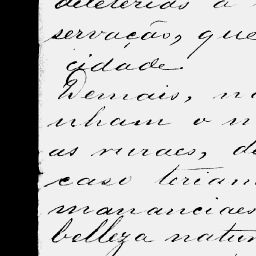 deleterios a
servação, que
cidade.
Demais, n
nham o n
as ruraes, de
caso teriam
mananciaes
belleza natur